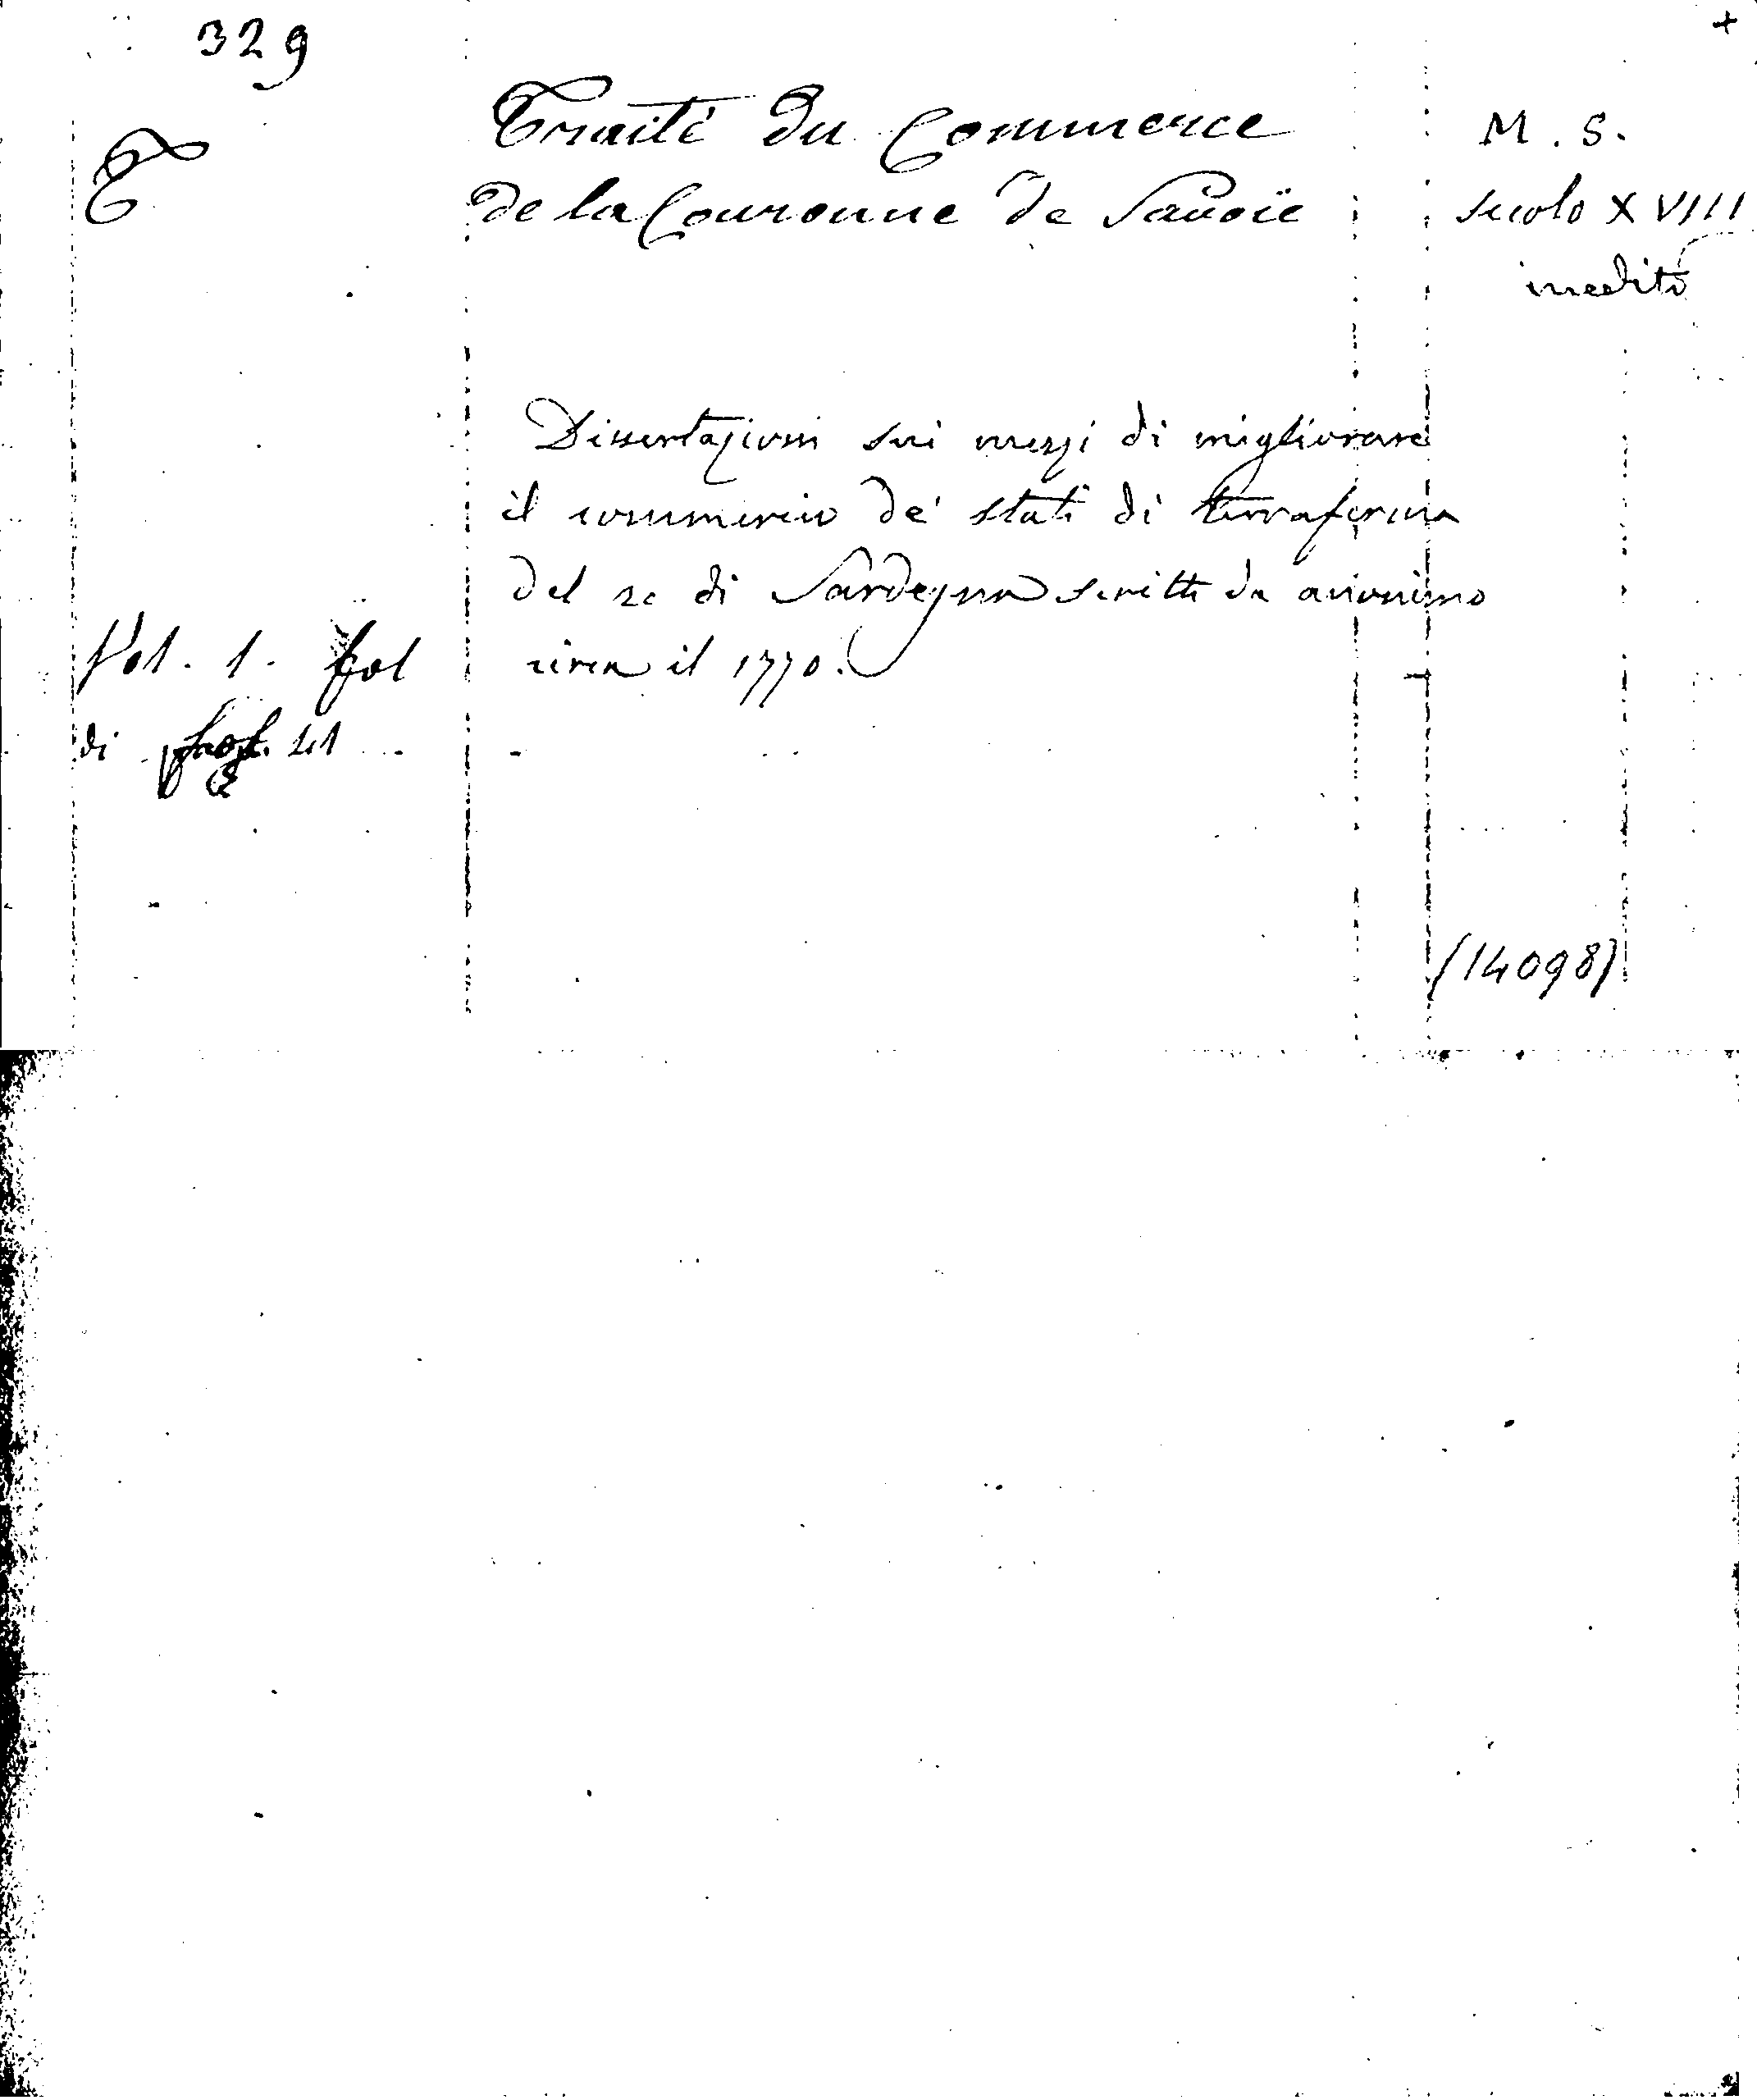 329
+
T
Traité du Commerce
de la Couronne de Savoïe
M. S.
secolo XVIII
inedito
Dissertazioni sui mezzi di migliorare
il commercio de' stati di terraferma
del re di Sardegna scritte da anonimo
circa il 1770.
Vol. 1. fol
di 41
(14098)